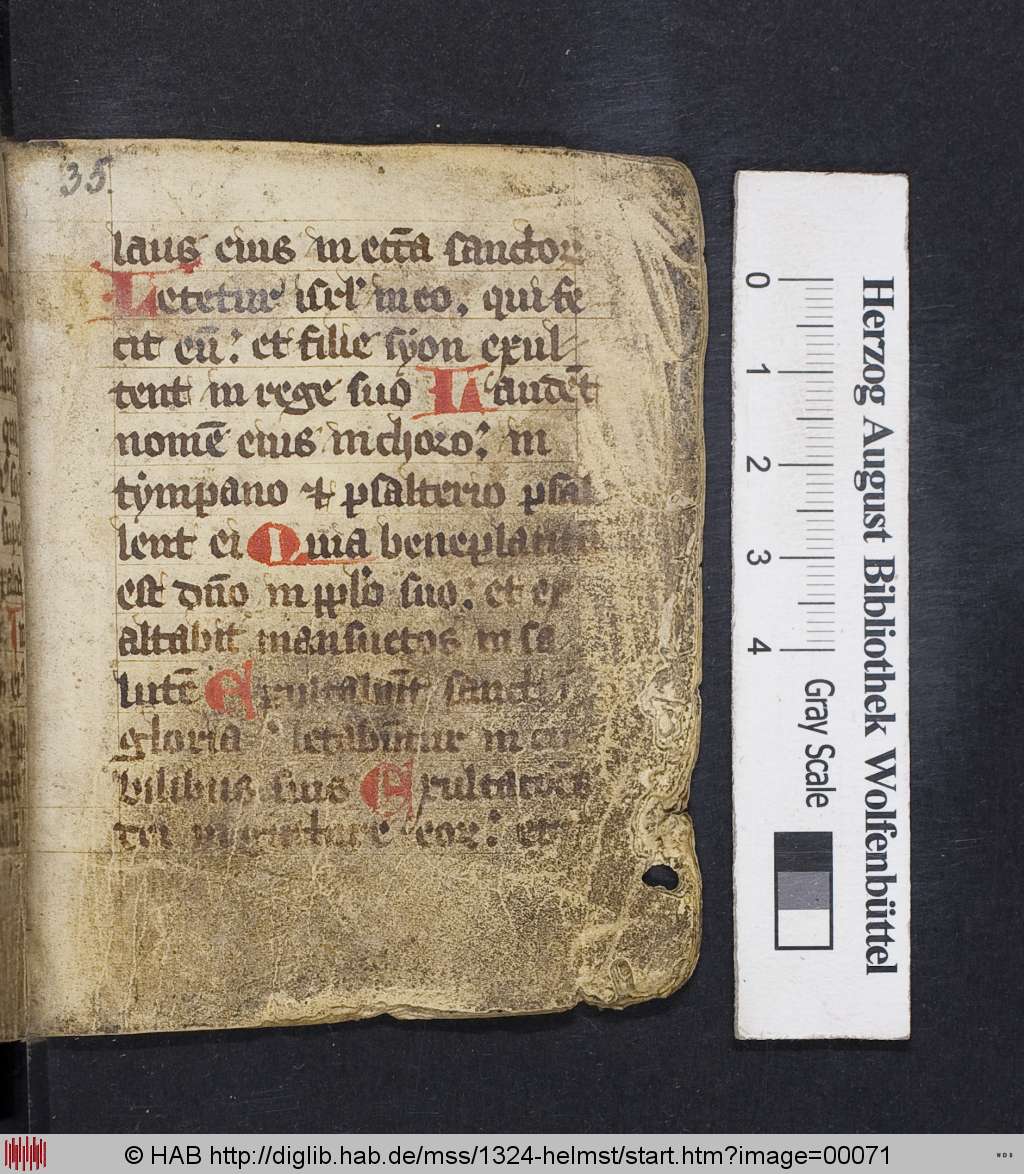 35
laus eius in ecc̄a sanctoꝝ
Letetur isrl' in eo. qui fe
cit eū: et filie syon exul
tent in rege suo Laudēt
nomē eius in choro: in
tympano ⁊ psalterio psal
lent ei Quia beneplacitū
est dn̄o in pplo suo. et ex
altabit mansuetos in sa
lutē Exultabūt sancti
gloria: letabūtur in cu
bilibus suis Exultatiōēs
in gutture eoꝝ: et
Herzog August Bibliothek Wolfenbüttel
0 1 2 3 4
Gray Scale
© HAB http://diglib.hab.de/mss/1324-helmst/start.htm?image=00071